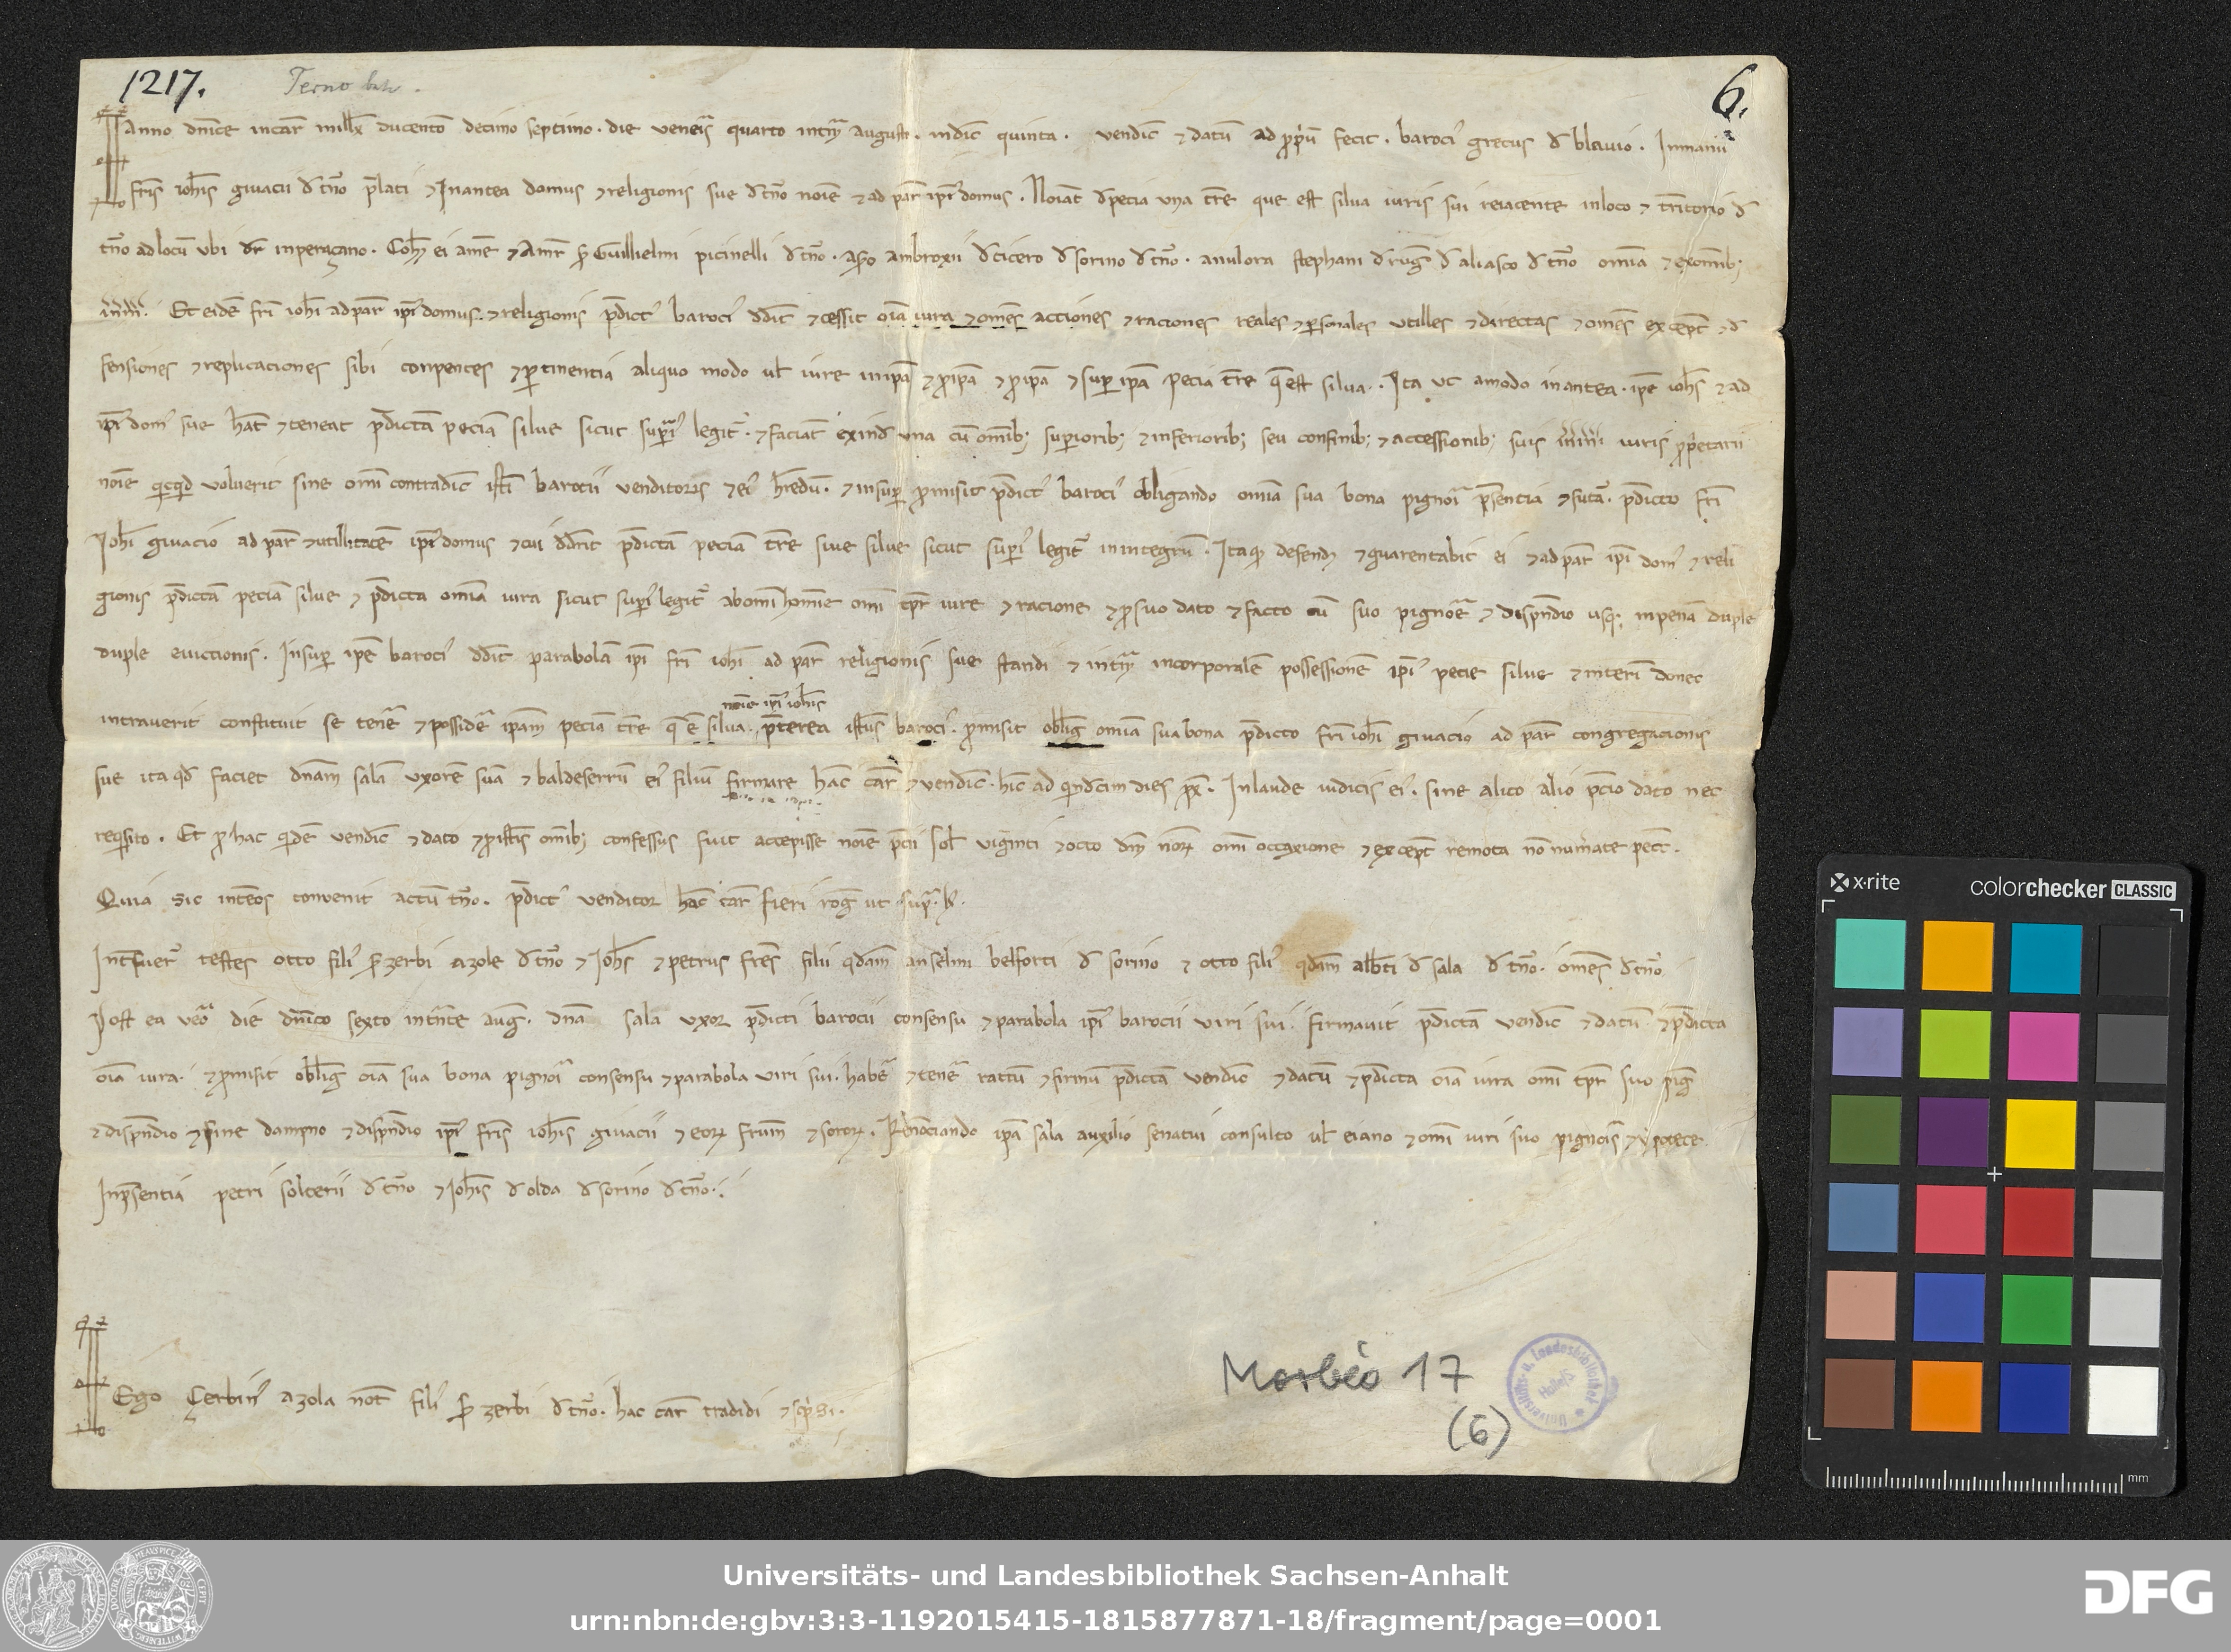 1217. Terno
6.
Anno dn̄ice incar̄ mill̄x ducento decimo septimo. die veneris quarto intr̄ augusti. indic̄ quinta. vendic̄ ⁊ datū ad ꝓpiū fecit. baroci' grecus d' blauio. In manu
fris ioh̄is giuacii d' t̄no p̄lati ⁊ In antea domus ⁊ religionis sue d' t̄no noīe ⁊ ad par̄ ip̄i' domus. Noīat̄ d' pecia vna t̄re que est silua iuris sui reiacente in loco ⁊ t̄ritorio d'
t̄no ad locū vbi dr̄ inperaçano. Coh̄ꝫ ei a mn̄e ⁊ a mr̄ ꝑ Guillielmi picinelli d' t̄no. asero ambroxii d' cicero d' sorino d' t̄no. a nulora stephani d' ruḡ d' aliasco d' t̄no omnia ⁊ ex om̄ibꝫ
in īntꝫ. Et eidē fr̄i ioh̄i ad par̄ ip̄i' domus ⁊ religionis p̄dict' baroci' ddit̄ ⁊ cessit oīa iura ⁊ omēs acciones ⁊ raciones reales ⁊ ꝑsonales utilles ⁊ directas ⁊ omēs except̄ ⁊ d'
fensiones ⁊ replicaciones sibi conpentes ⁊ ꝑtinentia aliquo modo ul̄ iure in ipā ⁊ ꝓ ipā ⁊ ꝑ ipā ⁊ suꝑ ipā pecia t̄re q̄ est silua. Ita vt amodo in antea. ipē ioh̄s ⁊ ad
ip̄i' dom' sue h̄at ⁊ teneat p̄dictā peciā silue sicut suꝑi' legit̄. ⁊ faciāt exind' vna cū om̄ibꝫ suꝑioribꝫ ⁊ inferioribꝫ seu confinibꝫ ⁊ accessionibꝫ suis in īnt' iuris ꝓpetarii
noīe qicq̄d voluerit sine om̄i contradic̄ isti' barocii venditoris ⁊ ei' h̄redū. ⁊ insuꝑ ꝓmisit p̄dict' baroci' obligando omnia sua bona pignori p̄sentia ⁊ futā. p̄dicto fr̄i
Ioh̄i giuacio ad par̄ ⁊ utillitatē ip̄i' domus ⁊ cui ddr̄it p̄dictā peciā t̄re siue silue sicut suꝑi' legit̄ in integrū. Itaq̄ defendꝫ ⁊ guarentabit ei ⁊ ad par̄ ip̄i' dom' ⁊ reli
gionis p̄dictā peciā silue ⁊ p̄dicta omnia iura sicut suꝑi' legit̄ ab om̄i homīe om̄i tpr̄ iure ⁊ racione ⁊ ꝓ suo dato ⁊ facto cū suo pignore ⁊ dispn̄dio usqꝫ in penā duple
duple euictionis. Insuꝑ ipē baroci' ddit̄ parabolā ip̄i fr̄i ioh̄i ad par̄ religionis sue standi ⁊ intr̄ in corporalē possessionē ip̄i' pecie silue ⁊ interī donec
noīe ip̄i' ioh̄is
intrauerit constituit se tenē ⁊ possidē ipam peciā t̄re q̄ ē silua. p̄terea istus baroci'. ꝓmisit obliḡ omnia sua bona p̄dicto fr̄i ioh̄i giuacio ad par̄ congregacionis
sue ita qd̄ faciet dn̄am salā vxorē suā ⁊ baldeserrū ei' filiū firmare hāc car̄ ⁊ vendic̄. hīc ad qindcim dies px̄. In laude iudicis ei'. sine alico alio p̄cio dato nec
req̄sito. Et ꝓ hac qidē vendic̄ ⁊ dato ⁊ ꝓ istis om̄ibꝫ confessus fuit accepisse noīe p̄cii sol̄ viginti ⁊ octo dn̄ nōrꝫ om̄i occaxione ⁊ except̄ remota nō num̄ate pecc̄.
Quia sic int̄ eos convenit actū t̄no. p̄dict' venditor hāc car̄ fieri roḡ ut supra. l'.
Int̄fuer̄ testes otto fili' ꝑ zerbi azole d' t̄no ⁊ Ioh̄s ⁊ petrus fr̄es filii qdam anselmi belforti d' sorino ⁊ otto fili' qdam alb̄ti d' sala d' t̄no. omēs d' t̄no.
Post ea vero die dn̄ico sexto intr̄nte auḡ. dn̄a sala vxor p̄dicti barocii consensu ⁊ parabola ip̄i' barocii viri sui. firmauit p̄dictā vendic̄ ⁊ datū ⁊ p̄dicta
oīa iura. ⁊ ꝓmisit obliḡ oīa sua bona pignori consensu ⁊ parabola viri sui. habē ⁊ tenē rattū ⁊ firmū p̄dictā vendic̄ ⁊ datū ⁊ p̄dicta oīa iura om̄i tpr̄ suo piḡ
⁊ dispn̄dio ⁊ sine dampno ⁊ dispn̄dio ip̄i' fris ioh̄is giuacii ⁊ eorꝫ frum̄ ⁊ sororꝫ. Renonciando ipā sala auxilio senatui consulto ul̄ eiano ⁊ om̄i iuri suo pignoris ⁊ ypotece.
In p̄sentia petri solterii d' t̄no ⁊ Ioh̄is d' olda d' sorino d' t̄no.
Ego Çerbin' azola not̄ fili' ꝑ zerbi d' t̄no. hac car̄ tradidi ⁊ scpsi.
Morbio 17
(6)
Universitäts- u. Landesbibliothek Halle/S
x-rite
colorchecker CLASSIC
mm
Universitäts- und Landesbibliothek Sachsen-Anhalt
urn:nbn:de:gbv:3:3-1192015415-1815877871-18/fragment/page=0001
DFG